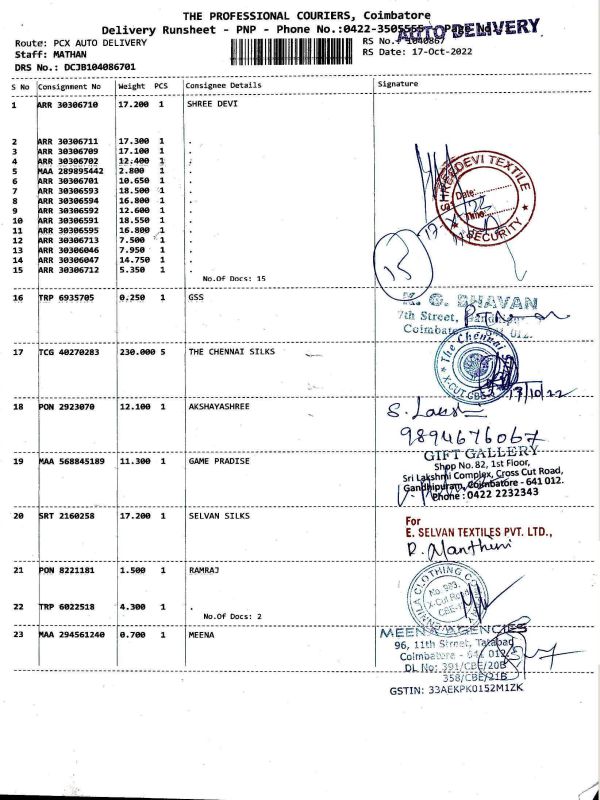 THE PROFESSIONAL COURIERS, Coimbatore
Delivery Runsheet - PNP - Phone No.:0422-3505555
AUTO DELIVERY
Route: PCX AUTO DELIVERY
RS No.: 1040867
Staff: MATHAN
RS Date: 17-Oct-2022
DRS No.: DCJB104086701
S No Consignment No Weight PCS Consignee Details Signature
1 ARR 30306710 17.200 1 SHREE DEVI
2 ARR 30306711 17.300 1 .
3 ARR 30306709 17.100 1 .
4 ARR 30306702 12.400 1 .
5 MAA 289895442 2.800 1 .
6 ARR 30306701 10.650 1 .
7 ARR 30306593 18.500 1 .
8 ARR 30306594 16.800 1 .
9 ARR 30306592 12.600 1 .
10 ARR 30306591 18.550 1 .
11 ARR 30306595 16.800 1 .
12 ARR 30306713 7.500 1 .
13 ARR 30306046 7.950 1 .
14 ARR 30306047 14.750 1 .
15 ARR 30306712 5.350 1 .
No.Of Docs: 15
SHREEDEVI TEXTILE
Date:
Time:
SECURITY
15
16 TRP 6935705 0.250 1 GSS
K. G. BHAVAN
7th Street,
17 TCG 40270283 230.000 5 THE CHENNAI SILKS
The Chennai
17/10/22
18 PON 2923070 12.100 1 AKSHAYASHREE
9894676067
19 MAA 568845189 11.300 1 GAME PRADISE
GIFT GALLERY
Shop No.82, 1st Floor,
Sri Lakshmi Complex, Cross Cut Road,
Gandhipuram, Coimbatore - 641 012.
Phone : 0422 2232343
20 SRT 2160258 17.200 1 SELVAN SILKS
For
E. SELVAN TEXTILES PVT. LTD.,
21 PON 8221181 1.500 1 RAMRAJ
CLOTHING
X-Cut Road
22 TRP 6022518 4.300 1 .
No.Of Docs: 2
23 MAA 294561240 0.700 1 MEENA
MEENA AGENCIES
96, 11th Street, Tatabad
Coimbatore - 641 012
DL No: 391/CBE/20B
358/CBE/21B
GSTIN: 33AEKPK0152M1ZK